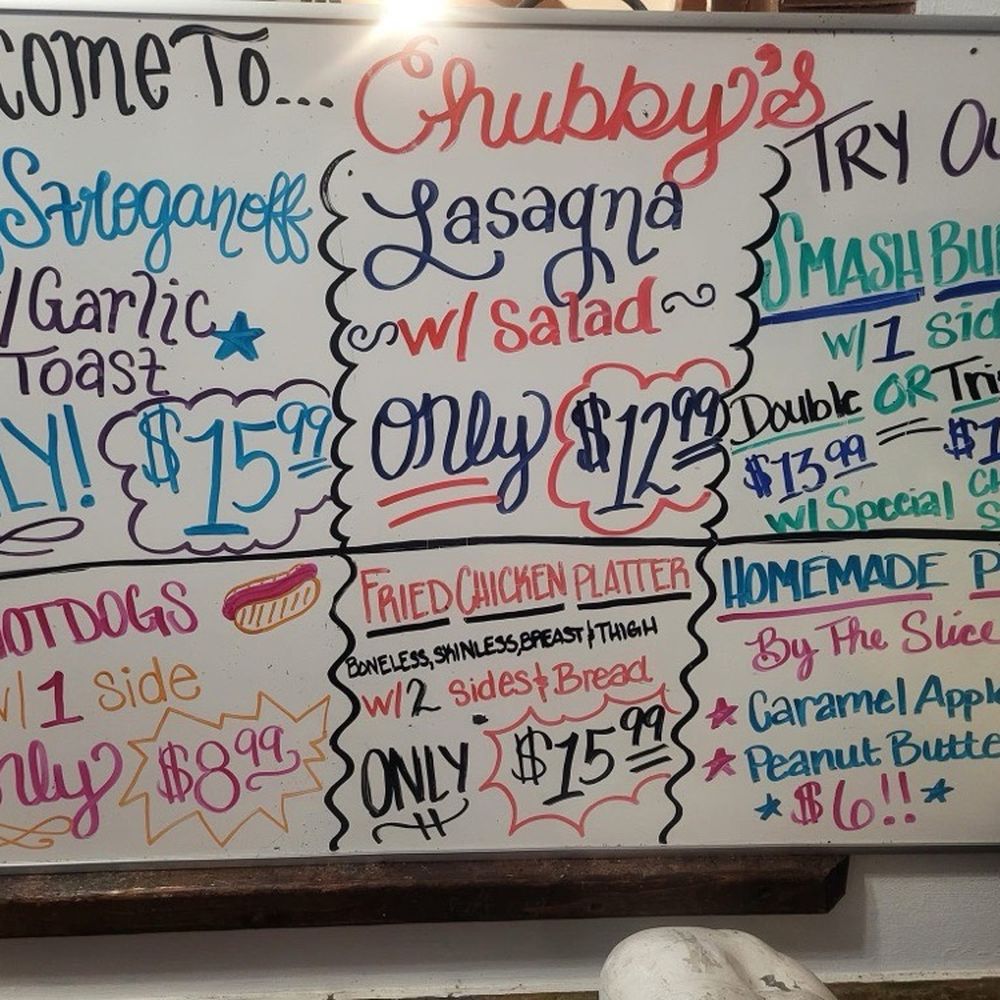 COME TO... Chubby's
Stroganoff
w/Garlic
Toast
LY! $15.99
Lasagna
w/ Salad
Only $12.99
TRY OU
SMASH BU
w/1 sid
Double OR Tri
$13.99 $1
w/Special
HOTDOGS
w/1 side
Only $8.99
FRIED CHICKEN PLATTER
BONELESS, SKINLESS, BREAST & THIGH
w/2 sides & Bread
ONLY $15.99
HOMEMADE P
By The Slice
Caramel Appl
Peanut Butte
$6!!